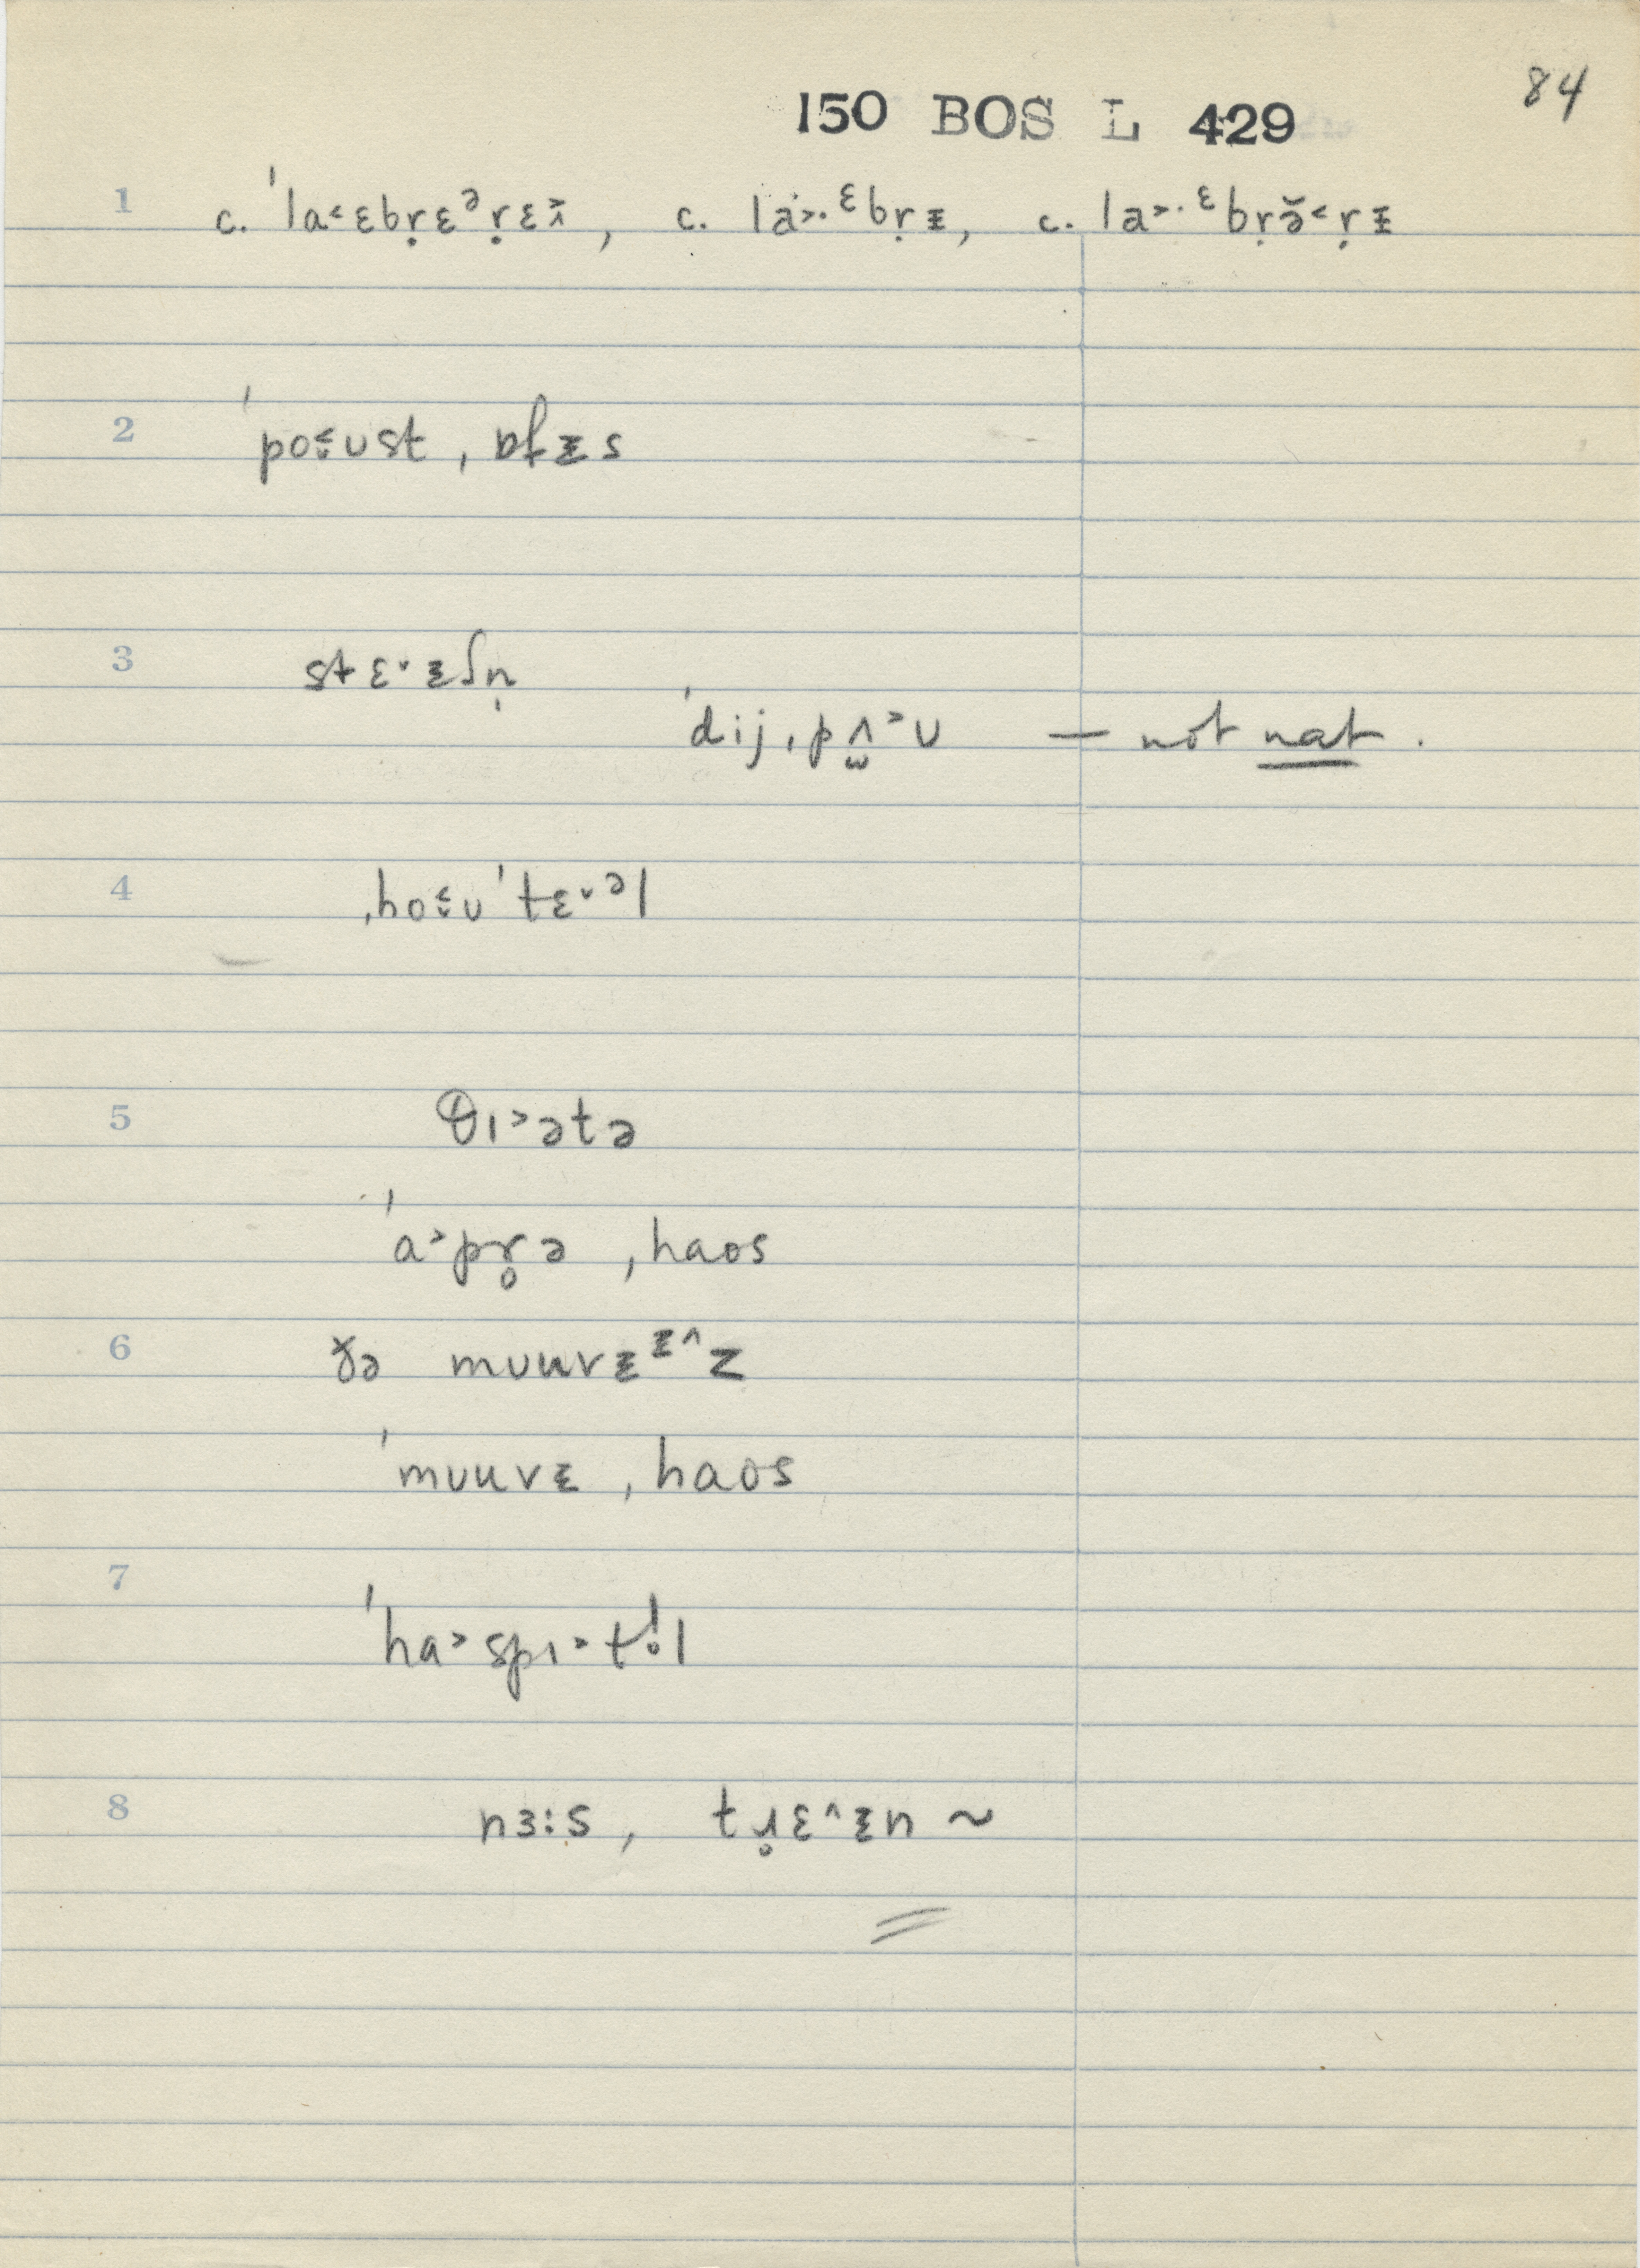 84
150 BOS L 429
1 c. ˈla˂ɛbṛɛᵊṛɛɪ̌, c. la˃·ᵋbṛᵻ, c. la˃·ᵋbṛə̆˂ṛᵻ
2 ˈpo˂̬ust, ɒfᵻs
3 stɛ˅·ᵻʃn̩
ˈdij ˌpʌ̯˃ʊ — not nat.
4 ˌho˂̬ʊˈtɛ˅·ᵊl
5 θɪ˃ətə
ˈa˃pr̥ə ˌhaos
6 ðə mʊuvᵻᵻ^z
ˈmʊuvᵻ ˌhaos
7 ˈha˃spɪ˃tl̥l
8 nɜ:s, tɹ̥ɛ^ᵻn ~